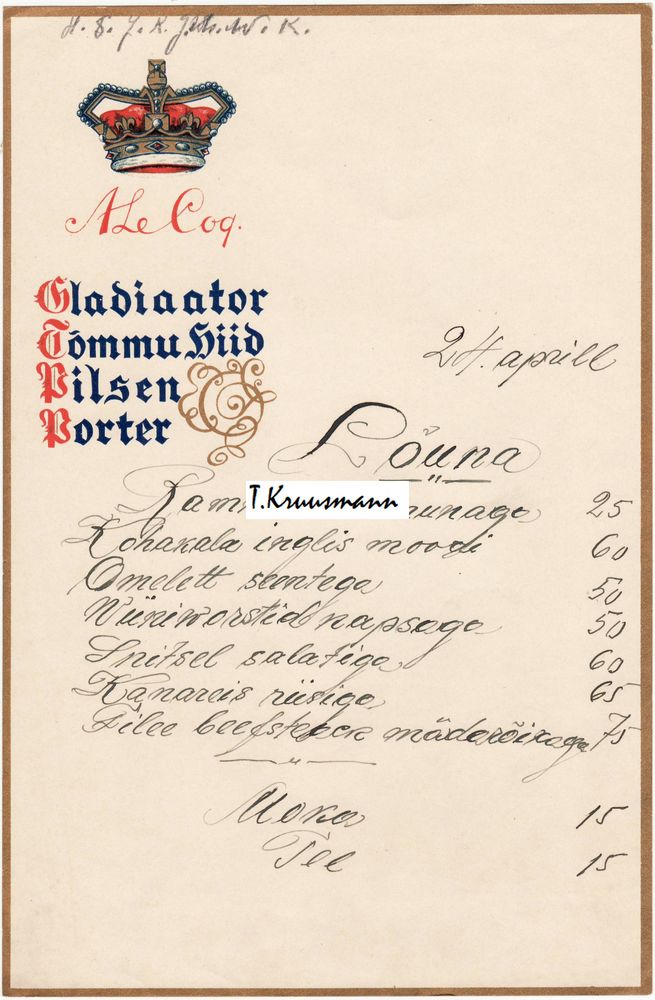 A Le Coq.
Gladiaator
Tõmmu Hiid
Pilsen
Porter
24. aprill
Lõuna
T.Kruusmann
munaga 25
Kohakala inglis moodi 60
Omelett seentega 50
Wiiniworstid kapsaga 50
Snitsel salatiga 60
Kanareis riisiga 65
Filee beefsteack mädarõikaga 75
Moka 15
Tee 15